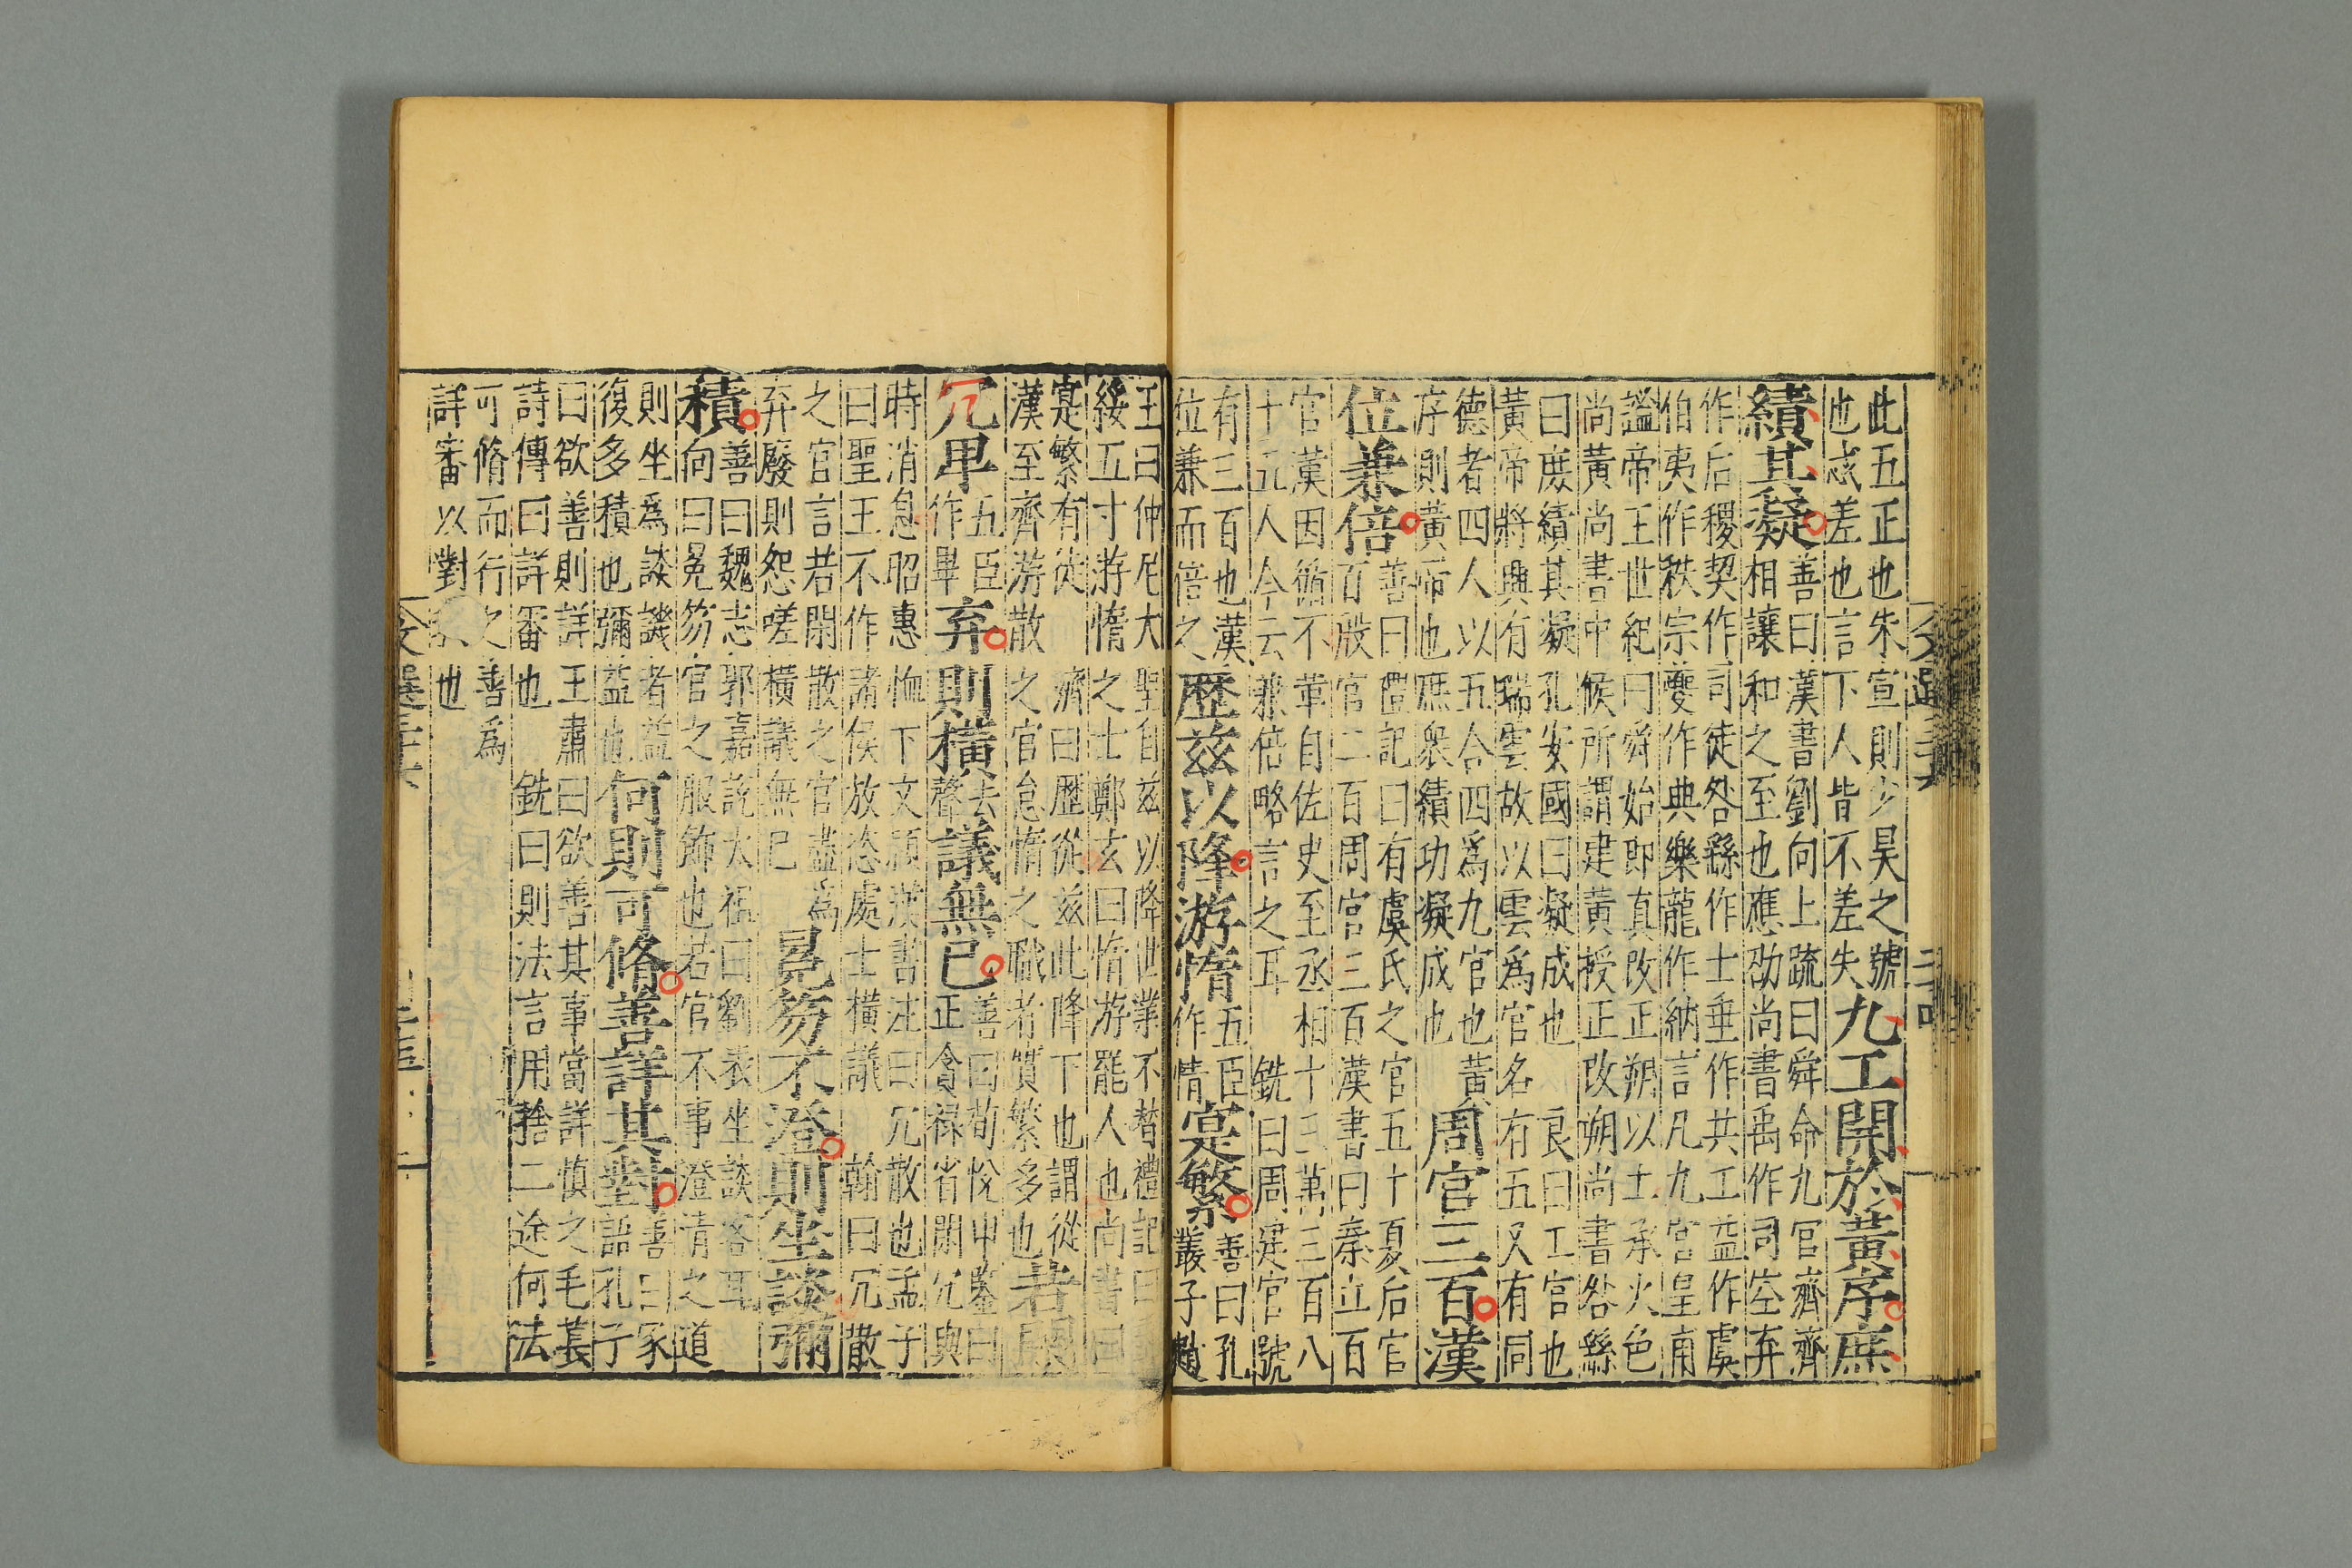 此五正也朱宣則少昊之號
也忒差也言下人皆不差失
九工開於黃序庶
績其凝
善曰漢書劉向上疏曰舜命九官濟濟
相讓和之至也應劭尚書禹作司空弃
作后稷契作司徒咎繇作士垂作共工益作虞
伯夷作秩宗夔作典樂龍作納言凡九官皇甫
謐帝王世紀曰舜始即真改正朔以土承火色
尚黃尚書中候所謂建黃授正改朔尚書咎繇
曰庶績其凝孔安國曰凝成也 良曰工官也
黃帝將興有瑞雲故以雲爲官名有五又有同
德者四人以五合四爲九官也黃
序則黃帝也庶衆績功凝成也
周官三百漢
位兼倍
善曰禮記曰有虞氏之官五十夏后官
百殷官二百周官三百漢書曰秦立百
官漢因循不革自佐史至丞相十三萬三百八
十五人今云兼倍略言之耳 銑曰周建官號
有三百也漢
位兼而倍之
歷茲以降游惰
五臣
作情
寔繁
善曰孔
叢子趙
王曰仲尼大聖自茲以降世業不替禮記曰
綏五寸游惰之士鄭玄曰惰游罷人也尚書曰
寔繁有徒 濟曰歷從茲此降下也謂從
漢至齊游散之官怠惰之職者質繁多也
若閑
冗卑
五臣
作畢
弃
則橫
去
聲
議無已
善曰荀悅申鑒曰
正貪祿省閑冗與
時消息昭惠恤下文穎漢書注曰冗散也孟子
曰聖王不作諸侯放恣處士橫議 翰曰冗散
之官言若閑散之官盡爲
弃廢則怨嗟橫議無已
冕笏不澄則坐談彌
積
善曰魏志郭嘉說太祖曰劉表坐談客耳
向曰冕笏官之服飾也若官不事澄清之道
則坐爲談譏者益
復多積也彌益也
何則可脩善詳其對
善曰家
語孔子
曰欲善則詳王肅曰欲善其事當詳慎之毛萇
詩傳曰詳審也 銑曰則法言用捨二途何法
可脩而行之善爲
詳審以對也